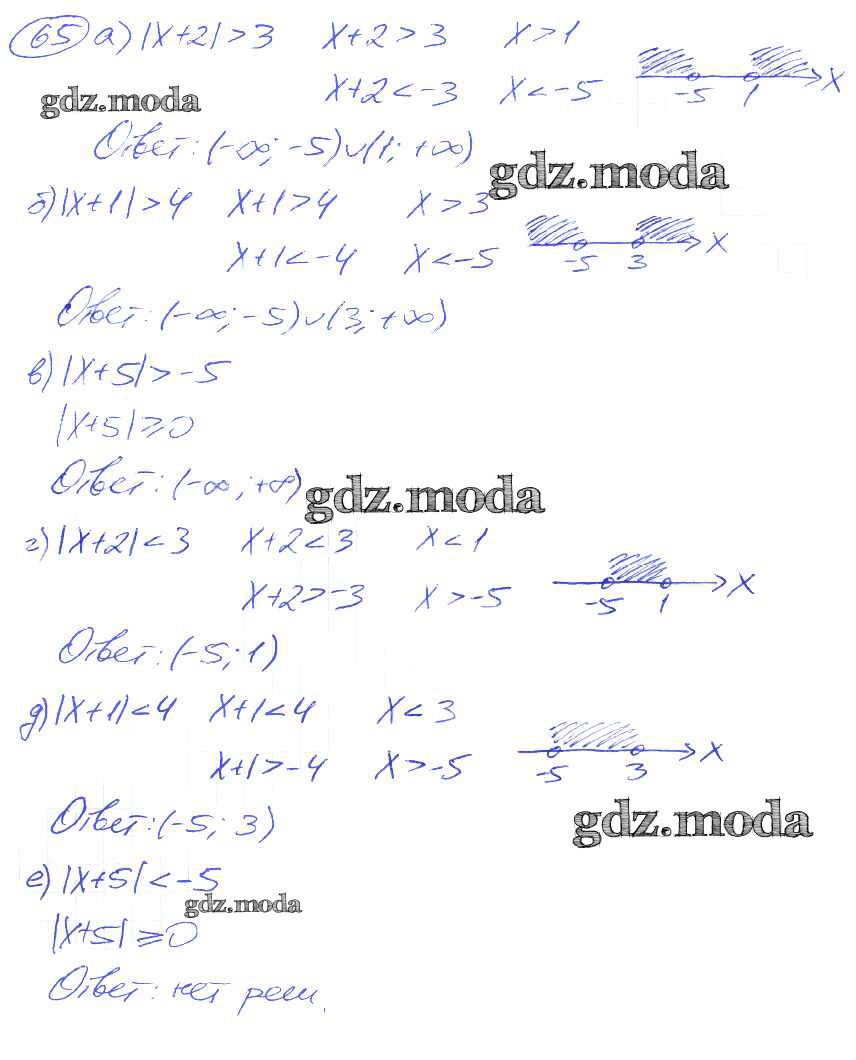 65 а) |x+2|>3 x+2>3 x>1
x+2<-3 x<-5 -5 1 x
gdz.moda
Ответ: (-∞; -5)∪(1; +∞)
gdz.moda
б) |x+1|>4 x+1>4 x>3
x+1<-4 x<-5 -5 3 x
Ответ: (-∞; -5)∪(3; +∞)
в) |x+5|>-5
|x+5|⩾0
Ответ: (-∞; +∞)
gdz.moda
г) |x+2|<3 x+2<3 x<1
x+2>-3 x>-5 -5 1 x
Ответ: (-5; 1)
д) |x+1|<4 x+1<4 x<3
x+1>-4 x>-5 -5 3 x
Ответ: (-5; 3)
gdz.moda
е) |x+5|<-5
gdz.moda
|x+5|⩾0
Ответ: нет реш.